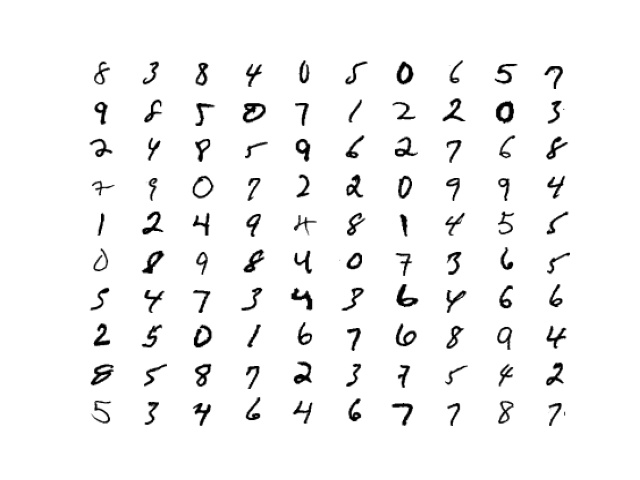 8 3 8 4 0 5 0 6 5 7
9 8 5 0 7 1 2 2 0 3
2 4 8 5 9 6 2 7 6 8
7 9 0 7 2 2 0 9 9 4
1 2 4 9 4 8 1 4 5 5
0 8 9 8 4 0 7 3 6 5
5 4 7 3 4 3 6 4 6 6
2 5 0 1 6 7 6 8 9 4
8 5 8 7 2 3 7 5 4 2
5 3 4 6 4 6 7 7 8 7